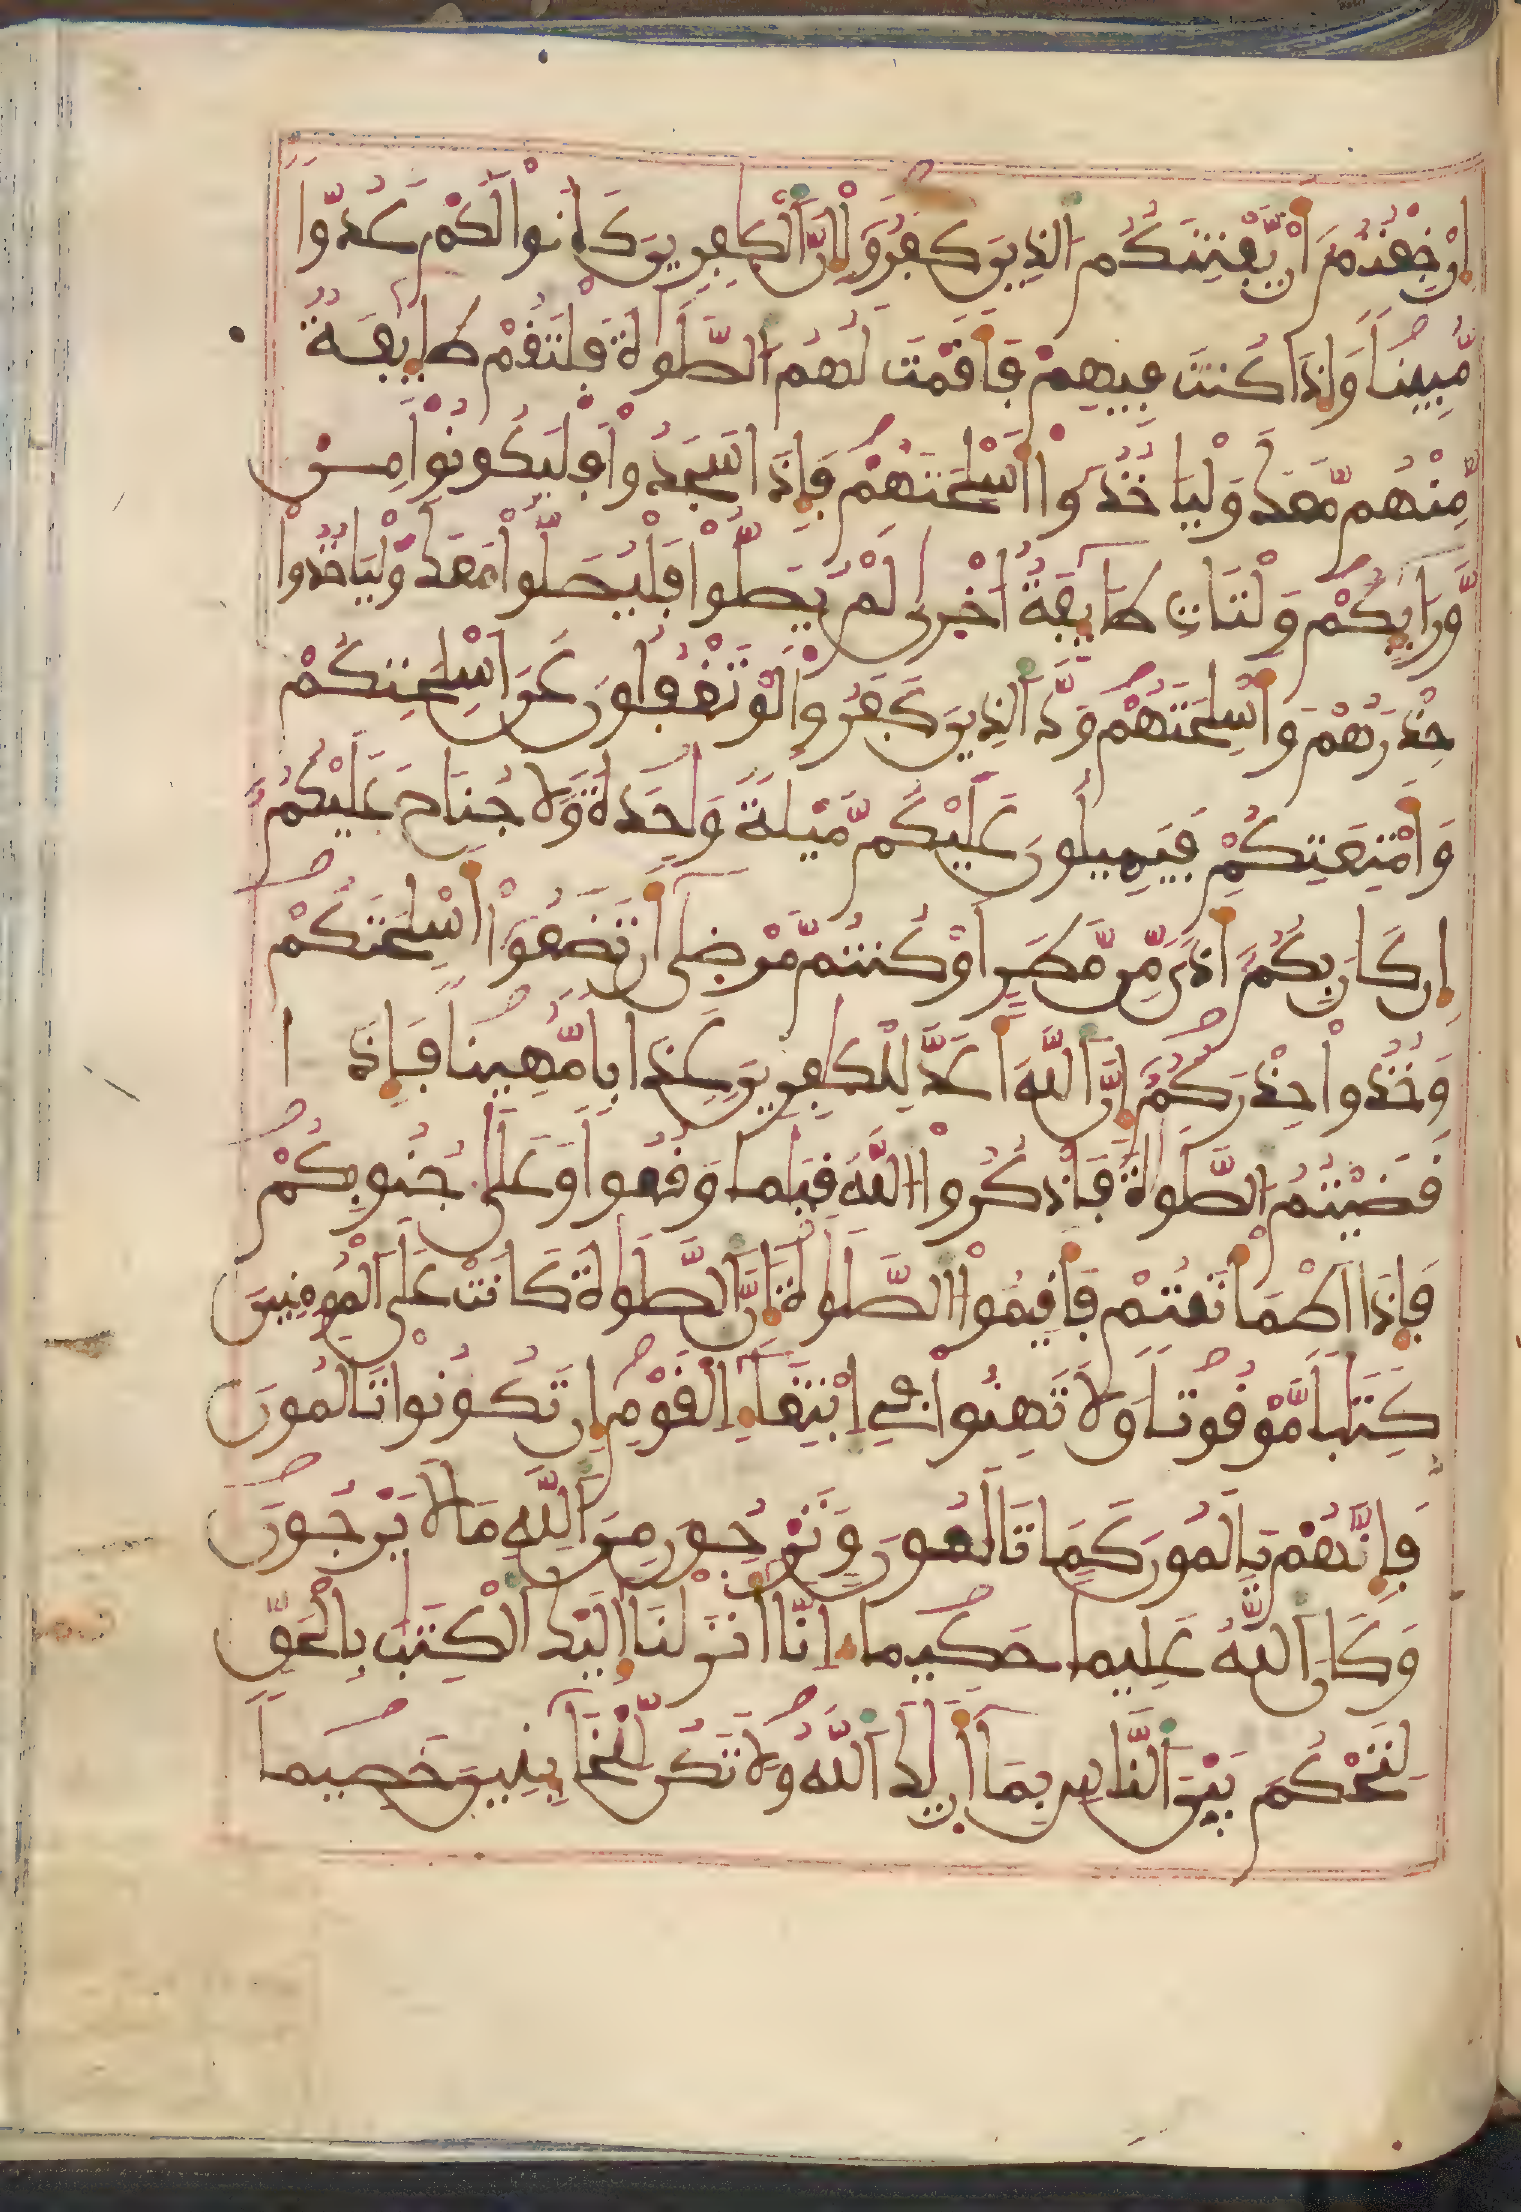 إِنْ خِفْتُمُۥٓ أَنْ يَّفْتِنَكُمُ الذِينَ كَفَرُوٓاْ إِنَّ اَلْكٰفِرِينَ كَانُواْ لَكُمْ عَدُوّاٗ
مُّبِيناٗ وَإِذَا كُنتَ فِيهِمْ فَأَقَمْتَ لَهُمُ الصَّلَوٰةَ فَلْتَقُمْ طَآئِفَةٞ
مِّنْهُم مَّعَكَ وَلْيَاخُذُوٓاْ أَسْلِحَتَهُمْ فَإِذَا سَجَدُواْ فَلْيَكُونُواْ مِنْ
وَّرَآئِكُمْ وَلْتَاتِ طَآئِفَةٌ اُخْر۪يٰ لَمْ يُصَلُّواْ فَلْيُصَلُّواْ مَعَكَ وَلْيَاخُذُواْ
حِذْرَهُمْ وَأَسْلِحَتَهُمْ وَدَّ اَلذِينَ كَفَرُواْ لَوْ تَغْفُلُونَ عَنَ اَسْلِحَتِكُمْ
وَأَمْتِعَتِكُمْ فَيَمِيلُونَ عَلَيْكُم مَّيْلَةٗ وَٰحِدَةٗ وَلَا جُنَاحَ عَلَيْكُمُۥٓ
إِن كَانَ بِكُمُۥٓ أَذيٗ مِّن مَّطَرٍ اَوْ كُنتُم مَّرْض۪يٰٓ أَن تَضَعُوٓاْ أَسْلِحَتَكُمْ
وَخُذُواْ حِذْرَكُمُۥٓ إِنَّ اَللَّهَ أَعَدَّ لِلْكٰفِرِينَ عَذَاباٗ مُّهِيناٗ فَإِذَا
قَضَيْتُمُ الصَّلَوٰةَ فَاذْكُرُواْ اللَّهَ قِيَٰماٗ وَقُعُوداٗ وَعَلَيٰ جُنُوبِكُمْ
فَإِذَا اَطْمَأْنَنتُمْ فَأَقِيمُواْ الصَّلَوٰةَ إِنَّ اَلصَّلَوٰةَ كَانَتْ عَلَي اَلْمُومِنِينَ
كِتَٰباٗ مَّوْقُوتاٗ وَلَا تَهِنُواْ فِي اِبْتِغَآءِ اِلْقَوْمِ إِن تَكُونُواْ تَالَمُونَ
فَإِنَّهُمْ يَالَمُونَ كَمَا تَالَمُونَ وَتَرْجُونَ مِنَ اَللَّهِ مَا لَا يَرْجُونَ
وَكَانَ اَللَّهُ عَلِيماً حَكِيماً اِنَّآ أَنزَلْنَآ إِلَيْكَ اَلْكِتَٰبَ بِالْحَقِّ
لِتَحْكُمَ بَيْنَ اَلنَّاسِ بِمَآ أَر۪يٰكَ اَللَّهُ وَلَا تَكُن لِّلْخَآئِنِينَ خَصِيماٗ